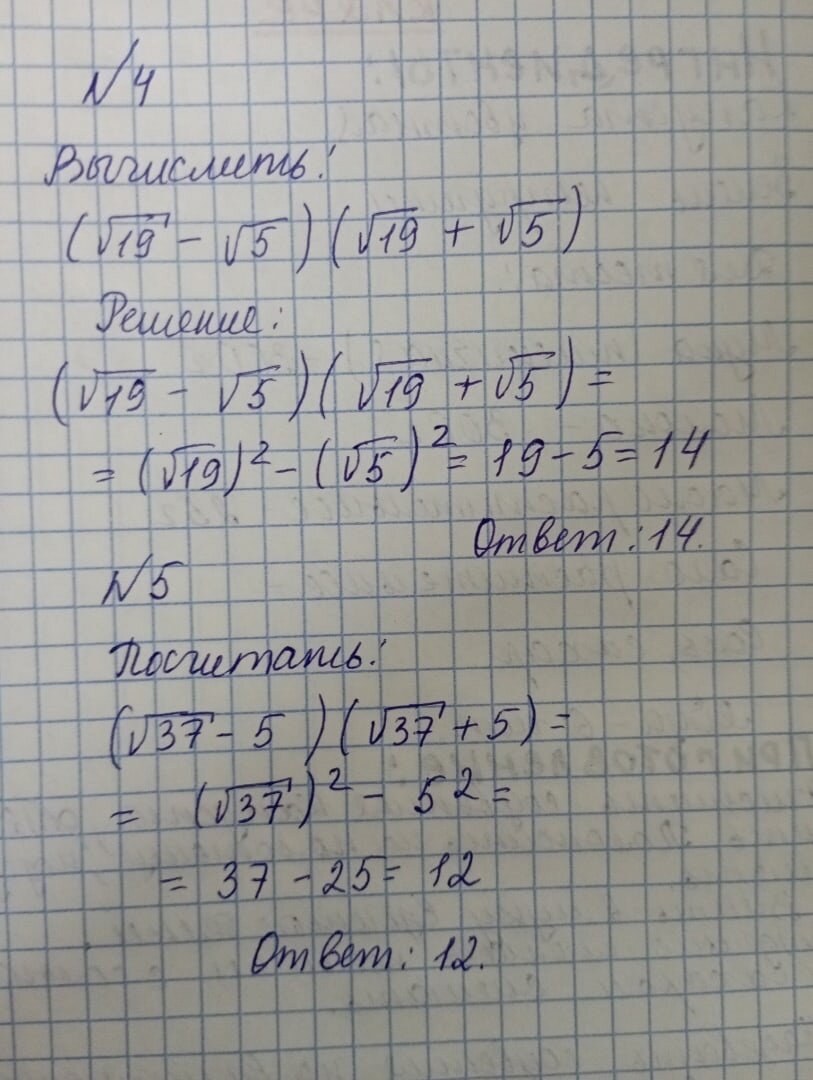 №4
Вычислить:
(√19 - √5)(√19 + √5)
Решение:
(√19 - √5)(√19 + √5) =
= (√19)² - (√5)² = 19 - 5 = 14
Ответ: 14.
№5
Посчитать:
(√37 - 5)(√37 + 5) =
= (√37)² - 5² =
= 37 - 25 = 12
Ответ: 12.